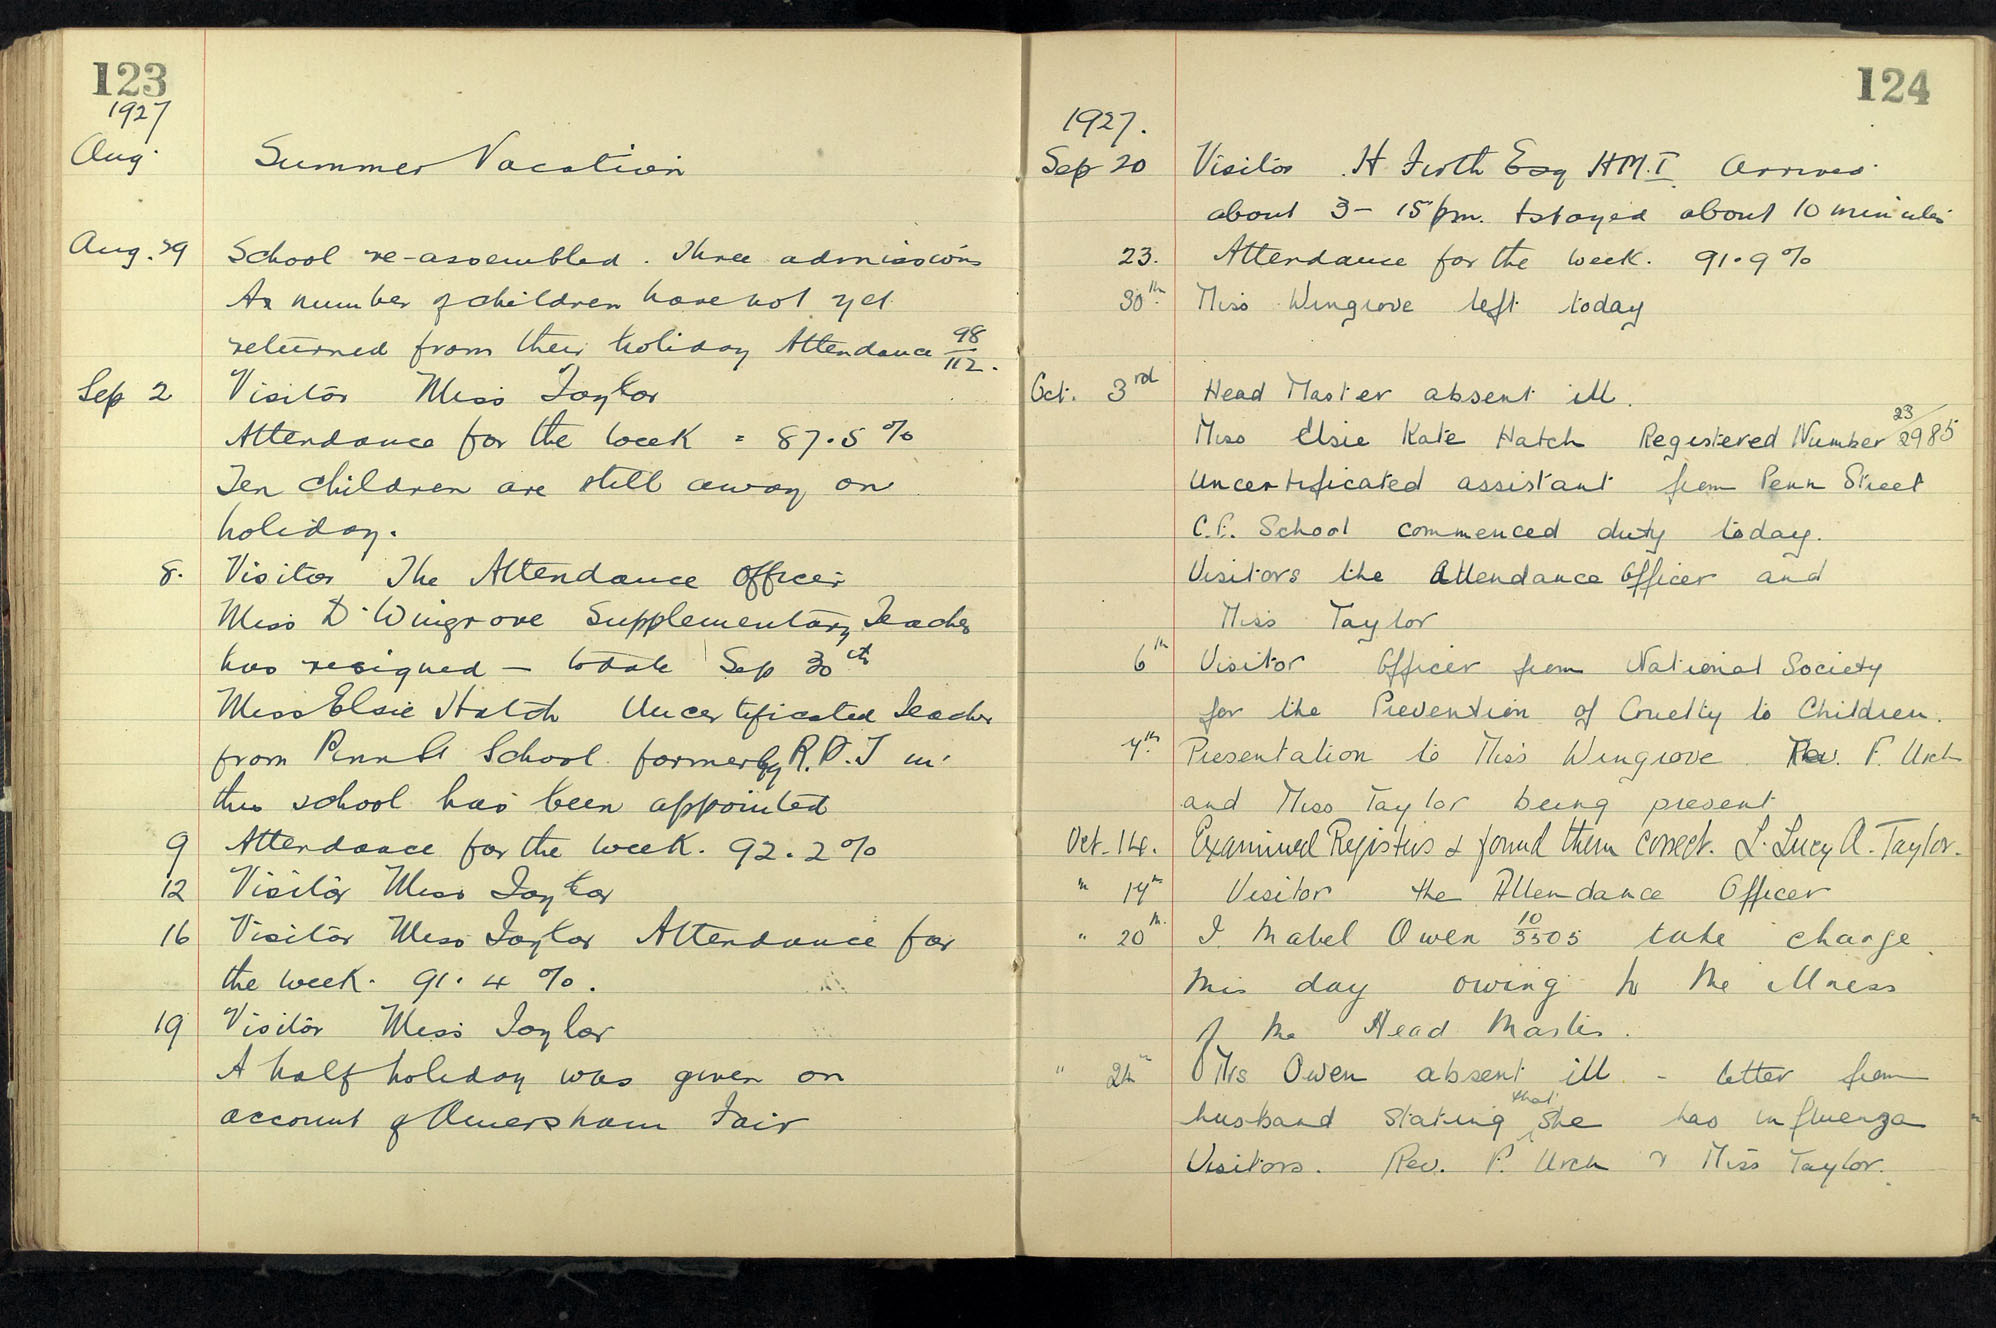 123
1927
Aug. Summer Vacation
Aug. 29 School re-assembled. Three admissions
A number of children have not yet
returned from their holiday Attendance 98/112.
Sep 2 Visitor Miss Taylor
Attendance for the week = 87.5 %
Ten children are still away on
holiday.
8. Visitor The Attendance Officer
Miss D Wingrove Supplementary Teacher
has resigned – to date Sep 30th
Miss Elsie Hatch Uncertificated Teacher
from Penn St School formerly R.P.T in
this school has been appointed
9 Attendance for the week. 92.2 %
12 Visitor Miss Taylor
16 Visitor Miss Taylor Attendance for
the week. 91.4 %.
19 Visitor Miss Taylor
A half holiday was given on
account of Amersham Fair
124
1927.
Sep 20 Visitor H Firth Esq HM.I. Arrived
about 3-15 pm. & stayed about 10 minutes
23. Attendance for the week. 91.9 %
30th Miss Wingrove left today
Oct. 3rd Head Master absent ill.
Miss Elsie Kate Hatch Registered Number 23/2985
Uncertificated assistant from Penn Street
C.E. School commenced duty today.
Visitors the Attendance Officer and
Miss Taylor
6th Visitor Officer from National Society
for the Prevention of Cruelty to Children.
7th Presentation to Miss Wingrove Rev. P. Urch
and Miss Taylor being present
Oct. 14. Examined Registers & found them correct. L. Lucy A. Taylor.
" 17th Visitor the Attendance Officer
" 20th I Mabel Owen 10/3505 take charge
this day owing to the illness
of the Head Master.
" Mrs Owen absent ill - letter from
husband stating that she has influenza
Visitors. Rev. P. Urch & Miss Taylor.